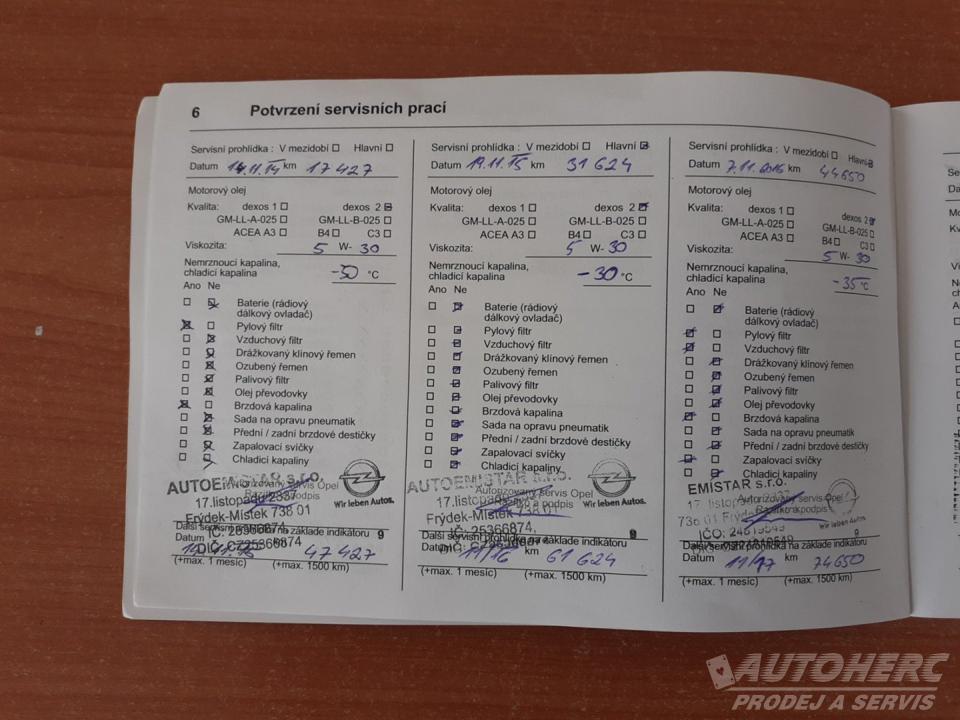 6 Potvrzení servisních prací
Servisní prohlídka : V mezidobí ☐ Hlavní ☐
Datum 14.11.14 km 17 427
Motorový olej
Kvalita: dexos 1 ☐ dexos 2 ☒
GM-LL-A-025 ☐ GM-LL-B-025 ☐
ACEA A3 ☐ B4 ☐ C3 ☐
Viskozita: 5 W- 30
Nemrznoucí kapalina,
chladicí kapalina -30 °C
Ano Ne
☐ ☒ Baterie (rádiový
dálkový ovladač)
☒ ☐ Pylový filtr
☐ ☒ Vzduchový filtr
☐ ☒ Drážkovaný klínový řemen
☐ ☒ Ozubený řemen
☐ ☒ Palivový filtr
☐ ☒ Olej převodovky
☒ ☐ Brzdová kapalina
☐ ☒ Sada na opravu pneumatik
☐ ☒ Přední / zadní brzdové destičky
☐ ☒ Zapalovací svíčky
☐ ☒ Chladicí kapaliny
AUTOEMISTAR s.r.o.
Autorizovaný servis Opel
17.listopadu 2337
Razítko a podpis
Wir leben Autos.
Frýdek-Místek 738 01
IČ: 25366874
Další servisní prohlídka na základě indikátoru 9
DIČ: CZ25366874
Datum km 47 427
(+max. 1 mesíc) (+max. 1500 km)
Servisní prohlídka : V mezidobí ☐ Hlavní ☒
Datum 19.11.15 km 31 624
Motorový olej
Kvalita: dexos 1 ☐ dexos 2 ☒
GM-LL-A-025 ☐ GM-LL-B-025 ☐
ACEA A3 ☐ B4 ☐ C3 ☐
Viskozita: 5 W- 30
Nemrznoucí kapalina,
chladicí kapalina -30 °C
Ano Ne
☐ ☒ Baterie (rádiový
dálkový ovladač)
☐ ☒ Pylový filtr
☐ ☒ Vzduchový filtr
☐ ☒ Drážkovaný klínový řemen
☐ ☒ Ozubený řemen
☐ ☒ Palivový filtr
☐ ☒ Olej převodovky
☐ ☒ Brzdová kapalina
☐ ☒ Sada na opravu pneumatik
☐ ☒ Přední / zadní brzdové destičky
☐ ☒ Zapalovací svíčky
☐ ☒ Chladicí kapaliny
AUTOEMISTAR s.r.o.
Autorizovaný servis Opel
17.listopadu
Razítko a podpis
Wir leben Autos.
Frýdek-Místek 738 01
IČ: 25366874,
Další servisní prohlídka na základě indikátoru 9
Datum 11/16 km 61 624
(+max. 1 mesíc) (+max. 1500 km)
Servisní prohlídka : V mezidobí ☐ Hlavní ☒
Datum 7.11.2016 km 44650
Motorový olej
Kvalita: dexos 1 ☐ dexos 2 ☒
GM-LL-A-025 ☐ GM-LL-B-025 ☐
ACEA A3 ☐ B4 ☐ C3 ☐
Viskozita: 5 W- 30
Nemrznoucí kapalina,
chladicí kapalina -35 °C
Ano Ne
☐ ☒ Baterie (rádiový
dálkový ovladač)
☒ ☐ Pylový filtr
☒ ☐ Vzduchový filtr
☐ ☒ Drážkovaný klínový řemen
☐ ☒ Ozubený řemen
☐ ☒ Palivový filtr
☐ ☒ Olej převodovky
☒ ☐ Brzdová kapalina
☐ ☒ Sada na opravu pneumatik
☐ ☒ Přední / zadní brzdové destičky
☒ ☐ Zapalovací svíčky
☐ ☒ Chladicí kapaliny
EMISTAR s.r.o.
Autorizovaný servis Opel
17. listopadu
Razítko a podpis
Wir leben Autos.
738 01 Frýdek
IČO:
Další servisní prohlídka na základě indikátoru 9
Datum 11/17 km 74650
(+max. 1 mesíc) (+max. 1500 km)
AUTOHERC
PRODEJ A SERVIS